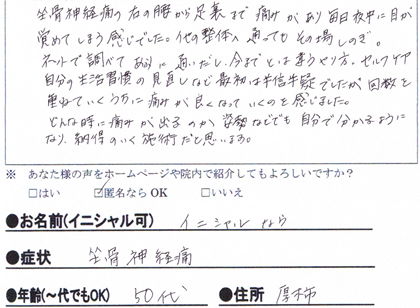 坐骨神経痛の右の腰から足裏まで痛みがあり毎日夜中に目が
覚めてしまう感じでした。他の整体へ通ってもその場しのぎ。
ネットで調べて 通いだし、今までとは違うやり方、セルフケア
自分の生活習慣の見直しなど最初は半信半疑でしたが回数を
重ねていくうちに痛みが良くなっていくのを感じました。
どんな時に痛みが出るのか 姿勢などでも 自分で分かるように
なり、納得のいく施術だと思います。
※ あなた様の声をホームページや院内で紹介してもよろしいですか?
□はい ☑匿名なら OK □いいえ
●お名前(イニシャル可) イニシャルなら
●症状 坐骨神経痛
●年齢(~代でもOK) 50代 ●住所 厚木市